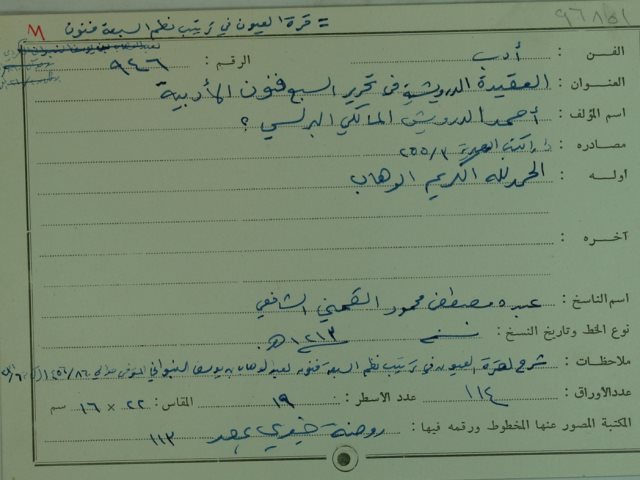 = قرة العيون في ترتيب نظم السبعة فنون
M
الفن : أدب
الرقم : ٩٤٦
العنوان : العقيدة الدرويشية في تحرير السبع فنون الأدبية
اسم المؤلف : أحمد الدرويش المالكي البرلسي ؟
مصادره : دار الكتب المصرية ٢٥٥/٣
أولـه : الحمد لله الكريم الوهاب
آخـره :
اسم الناسخ : عبده مصطفى محمود القصمني الشافعي
نوع الخط وتاريخ النسخ : نسخ ١٢١٣ هـ.
ملاحظات : شرح لقرة العيون في ترتيب نظم السبعة فنون لعبد الوهاب بن يوسف البنواني
عدد الأوراق : ١١٤ عدد الأسطر : ١٩ المقاس : ٢٢ × ١٦ سم
المكتبة المصور عنها المخطوط ورقمه فيها : روضة خيري بمصر ١١٣